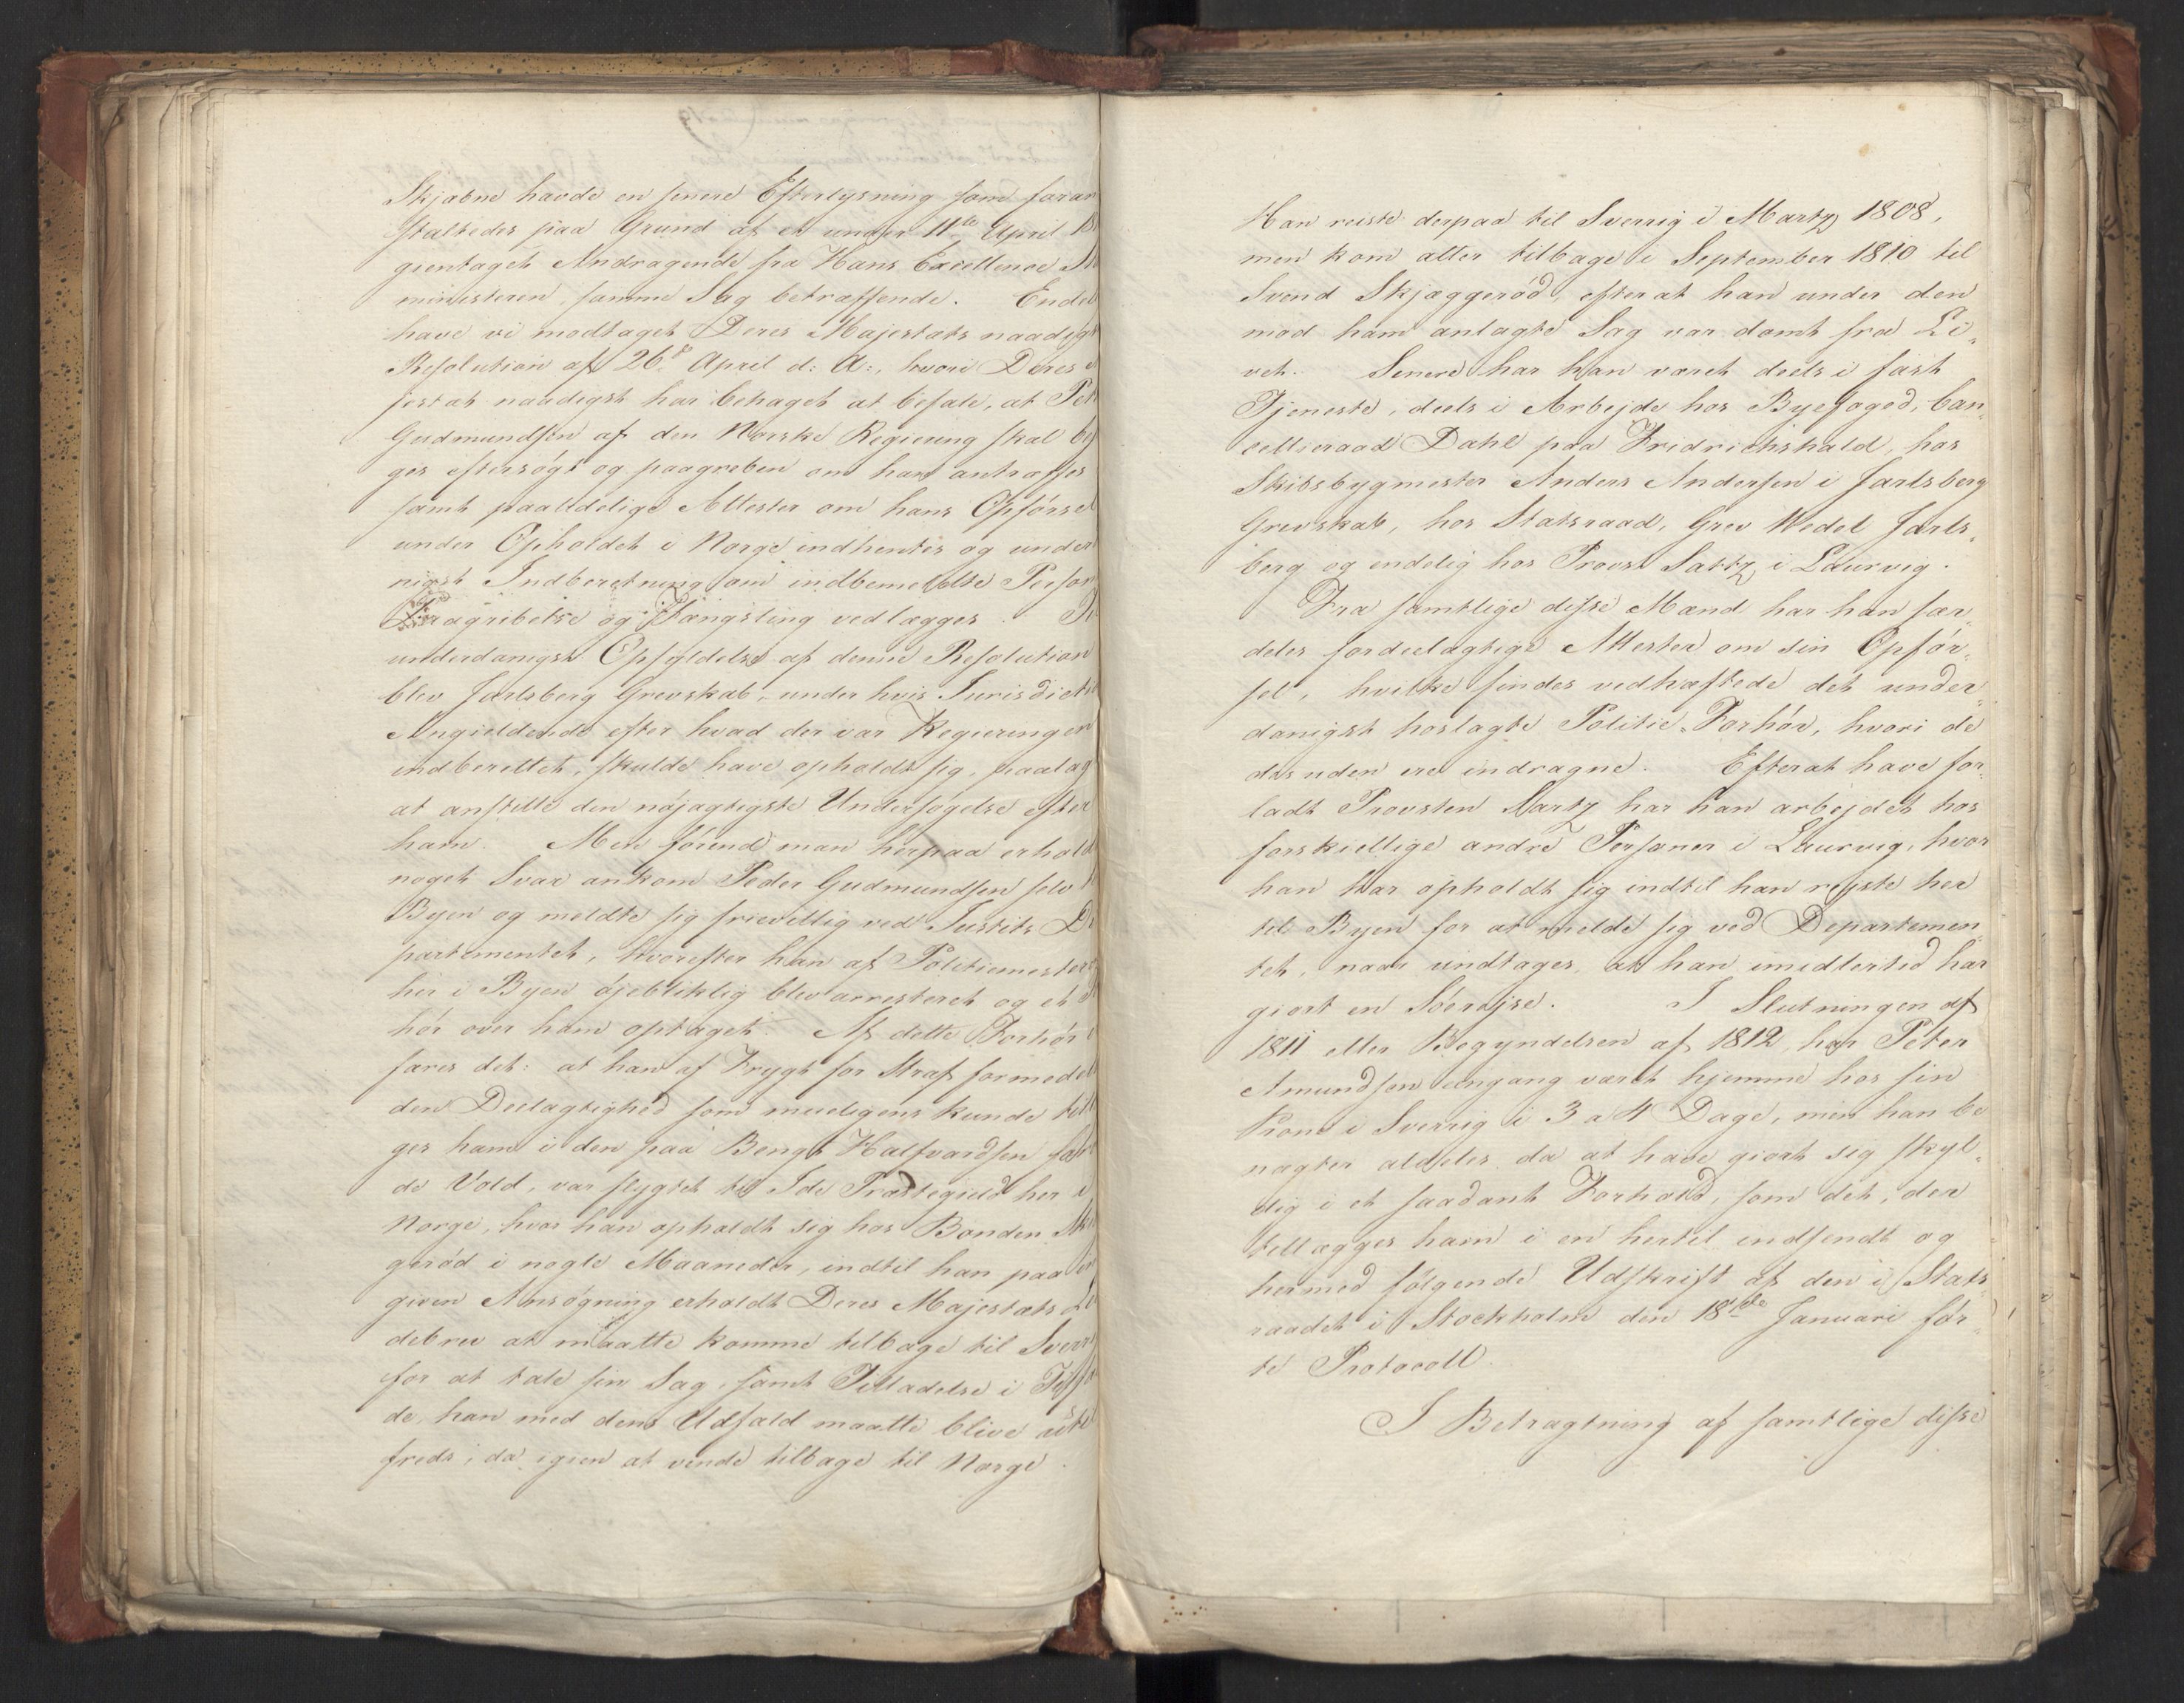 Skjæbne havde en senere Efterlysning som foran
staltedes paa Grund af et under 11te April
gientaget Andragende fra Hans Excellence
ministeren, samme Sag betræffende. Ende
have vi modtaget Deres Majestæts naadigs
Resolution af 26de April d: A:, hvori Deres
jestæt naadigst har behaget at befale, at Pet
Gudmundsen af den Norske Regiering skal
ges eftersøgt og paagreben om han antræffes
samt paalidelige Attester om hans Opførsel
under Opholdet i Norge indhentes og under
nigst Indberetning om indbemeldte Person
Paagribelse og Fængsling vedlægges.
underdanigst Opfyldelse af denne Resolution
blev Jarlsberg Grevskab, under hvis Jurisdict
Angieldende efter hvad der var Regieringen
indberettet, skulde have opholdt sig, paalag
at anstille den nøjagtigste Undersøgelse efter
ham. Men førend man herpaa erhold
noget Svar ankom Peder Gudmundsen selv
Byen og meldte sig frievillig ved Justits De
partementet, hvorefter han af Politiemester
her i Byen øjebliklig blev arresteret og et
hør over ham optaget. Af dette Forhør
fares det: at han af Frygt for Straf formede
den Deelagtighed som mueligens kunde till
ges ham i den paa Bengt Halfvardsen
de Vold, var flygtet til Ide Præstegield her i
Norge, hvor han opholdt sig hos Bonden
gerød i nogle Maaneder, indtil han paa
given Ansøgning erholdt Deres Majestæts Le
debrev at maatte komme tilbage til Sverr
for at tale sin Sag, samt Tilladelse i
de, han med dens Udfald maatte blive
freds, da igien at vende tilbage til Norge.
Han reiste derpaa til Sverrig i Martz 1808,
men kom atter tilbage i September 1810 til
Svend Skjæggerød, efterat han under den
mod ham anlagte Sag var dømt fra Li„
vet. Senere har han været deels i fast
Tjeneste, deels i Arbejde hos Byefoged, Can„
celliraad Dahl paa Fridrichshald, hos
Skibsbygmester Anders Andersen i Jarlsberg
Grevskab, hos Statsraad, Grev Wedel Jarls„
berg og endelig hos Provst Sartz i Laurvig.
Fra samtlige disse Mænd har han sær„
deles fordeelagtige Attester om sin Opfør„
sel, hvilke findes vedhæftede det under„
danigst hoslagte Politie-Forhør, hvori de
desuden ere indragne. Efterat have for„
ladt Provsten Sartz har han arbejdet hos
forskiellige andre Personer i Laurvig, hvor
han har opholdt sig indtil han rejste her
til Byen for at melde sig ved Departemen„
tet, naar undtages, at han imidlertid har
giort en Søerejse. I Slutningen af
1811 eller Begyndelsen af 1812, har Peter
Amundsen eengang været hjemme hos sin
Kone i Sverrig i 3 a 4 Dage, men han be
nægter aldeles da at have giort sig skyl„
dig i et saadant Forhold, som det, der
tillægges ham i en hertil indsendt og
hermed følgende Udskrift af den i Stats
raadet i Stockholm den 18de Januari før„
te Protocoll.
I Betragtning af samtlige disse